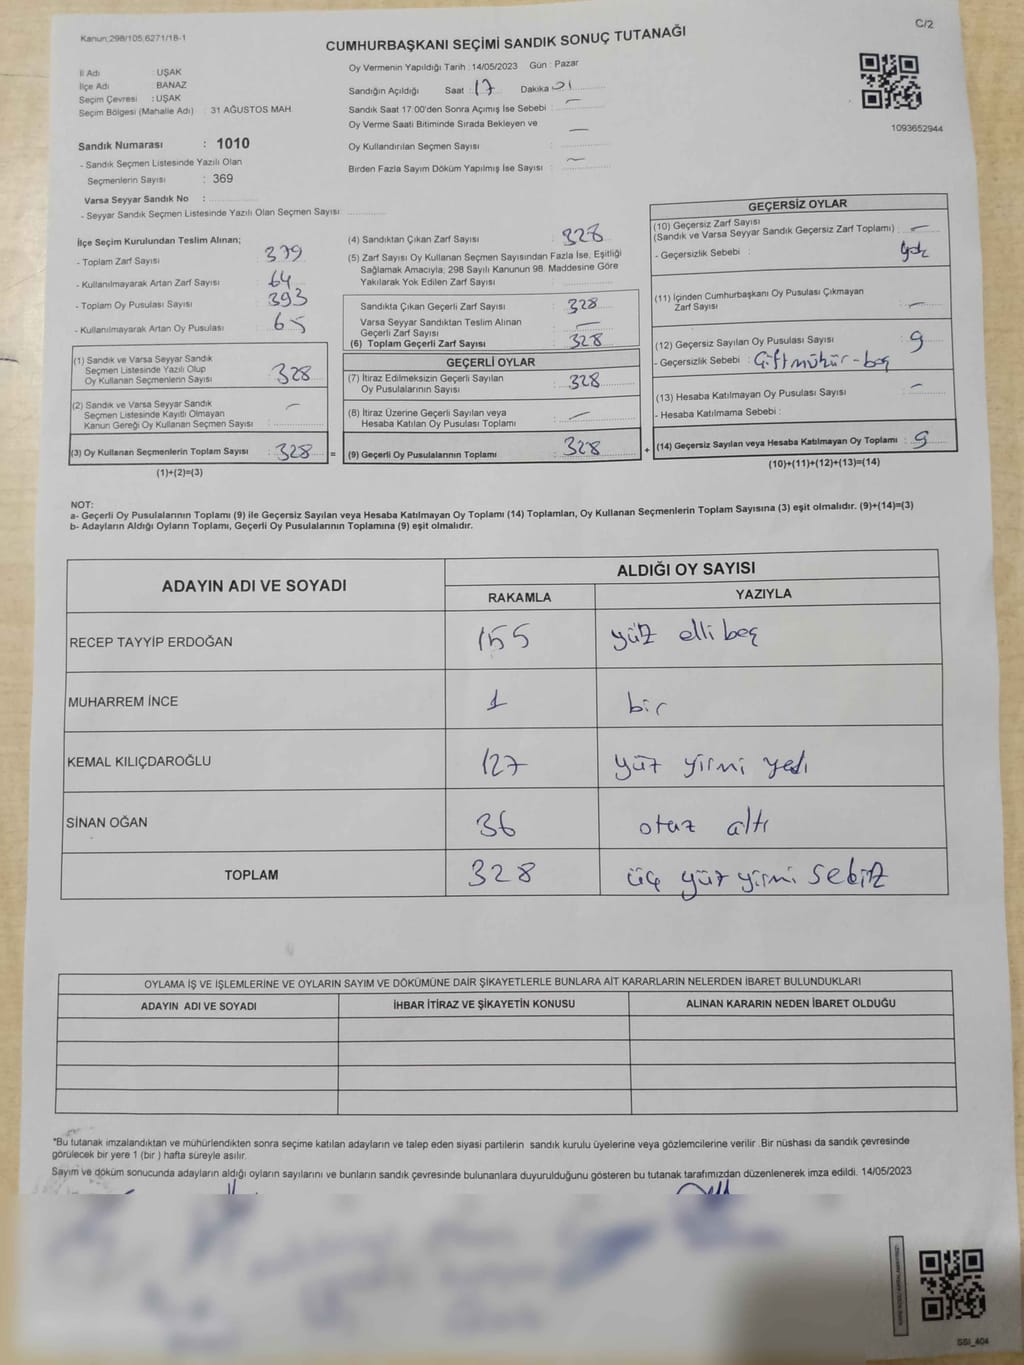 Kanun:298/105;6271/18-1
C/2
CUMHURBAŞKANI SEÇİMİ SANDIK SONUÇ TUTANAĞI
İl Adı UŞAK
İlçe Adı BANAZ
Seçim Çevresi : UŞAK
Seçim Bölgesi (Mahalle Adı) : 31 AĞUSTOS MAH.
Sandık Numarası : 1010
- Sandık Seçmen Listesinde Yazılı Olan
Seçmenlerin Sayısı : 369
Varsa Seyyar Sandık No :
- Seyyar Sandık Seçmen Listesinde Yazılı Olan Seçmen Sayısı
Oy Vermenin Yapıldığı Tarih : 14/05/2023 Gün : Pazar
Sandığın Açıldığı Saat : 17 Dakika : 01
Sandık Saat 17:00'den Sonra Açımış İse Sebebi : —
Oy Verme Saati Bitiminde Sırada Bekleyen ve
Oy Kullandırılan Seçmen Sayısı : —
Birden Fazla Sayım Döküm Yapılmış İse Sayısı : —
1093652944
İlçe Seçim Kurulundan Teslim Alınan;
- Toplam Zarf Sayısı : 379
- Kullanılmayarak Artan Zarf Sayısı : 64
- Toplam Oy Pusulası Sayısı : 393
- Kullanılmayarak Artan Oy Pusulası : 65
(1) Sandık ve Varsa Seyyar Sandık
Seçmen Listesinde Yazılı Olup
Oy Kullanan Seçmenlerin Sayısı : 328
(2) Sandık ve Varsa Seyyar Sandık
Seçmen Listesinde Kayıtlı Olmayan
Kanun Gereği Oy Kullanan Seçmen Sayısı : —
(3) Oy Kullanan Seçmenlerin Toplam Sayısı : 328 =
(1)+(2)=(3)
(4) Sandıktan Çıkan Zarf Sayısı : 328
(5) Zarf Sayısı Oy Kullanan Seçmen Sayısından Fazla İse, Eşitliği
Sağlamak Amacıyla; 298 Sayılı Kanunun 98. Maddesine Göre
Yakılarak Yok Edilen Zarf Sayısı :
Sandıkta Çıkan Geçerli Zarf Sayısı : 328
Varsa Seyyar Sandıktan Teslim Alınan
Geçerli Zarf Sayısı : —
(6) Toplam Geçerli Zarf Sayısı : 328
GEÇERLİ OYLAR
(7) İtiraz Edilmeksizin Geçerli Sayılan
Oy Pusulalarının Sayısı : 328
(8) İtiraz Üzerine Geçerli Sayılan veya
Hesaba Katılan Oy Pusulası Toplamı : —
(9) Geçerli Oy Pusulalarının Toplamı : 328 +
GEÇERSİZ OYLAR
(10) Geçersiz Zarf Sayısı
(Sandık ve Varsa Seyyar Sandık Geçersiz Zarf Toplamı) : —
- Geçersizlik Sebebi : Yok
(11) İçinden Cumhurbaşkanı Oy Pusulası Çıkmayan
Zarf Sayısı : —
(12) Geçersiz Sayılan Oy Pusulası Sayısı : 9
- Geçersizlik Sebebi : Çift mühür - boş
(13) Hesaba Katılmayan Oy Pusulası Sayısı : —
- Hesaba Katılmama Sebebi :
(14) Geçersiz Sayılan veya Hesaba Katılmayan Oy Toplamı : 9
(10)+(11)+(12)+(13)=(14)
NOT:
a- Geçerli Oy Pusulalarının Toplamı (9) ile Geçersiz Sayılan veya Hesaba Katılmayan Oy Toplamı (14) Toplamları, Oy Kullanan Seçmenlerin Toplam Sayısına (3) eşit olmalıdır. (9)+(14)=(3)
b- Adayların Aldığı Oyların Toplamı, Geçerli Oy Pusulalarının Toplamına (9) eşit olmalıdır.
ADAYIN ADI VE SOYADI
ALDIĞI OY SAYISI
RAKAMLA YAZIYLA
RECEP TAYYİP ERDOĞAN 155 yüz elli beş
MUHARREM İNCE 1 bir
KEMAL KILIÇDAROĞLU 127 yüz yirmi yedi
SİNAN OĞAN 36 otuz altı
TOPLAM 328 üç yüz yirmi sekiz
OYLAMA İŞ VE İŞLEMLERİNE VE OYLARIN SAYIM VE DÖKÜMÜNE DAİR ŞİKAYETLERLE BUNLARA AİT KARARLARIN NELERDEN İBARET BULUNDUKLARI
ADAYIN ADI VE SOYADI İHBAR İTİRAZ VE ŞİKAYETİN KONUSU ALINAN KARARIN NEDEN İBARET OLDUĞU
*Bu tutanak imzalandıktan ve mühürlendikten sonra seçime katılan adayların ve talep eden siyasi partilerin sandık kurulu üyelerine veya gözlemcilerine verilir .Bir nüshası da sandık çevresinde
görülecek bir yere 1 (bir ) hafta süreyle asılır.
Sayım ve döküm sonucunda adayların aldığı oyların sayılarını ve bunların sandık çevresinde bulunanlara duyurulduğunu gösteren bu tutanak tarafımızdan düzenlenerek imza edildi. 14/05/2023
SSI_404